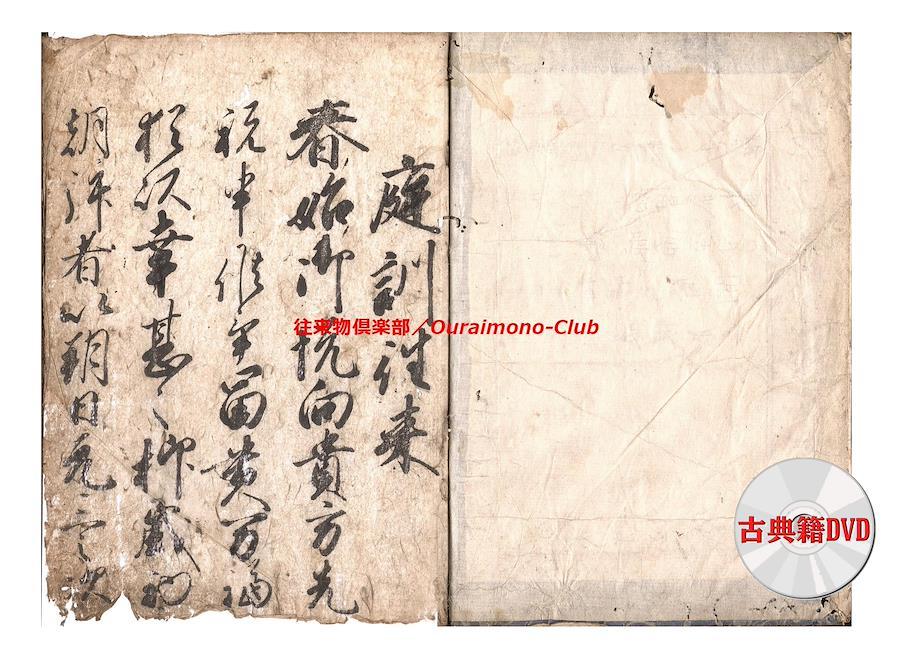 庭訓往来
春始御悦向貴方先
祝申候畢富貴万福
猶以幸甚々抑歳初
朝拝者以朔日元三之次
往来物倶楽部／Ouraimono-Club
古典籍DVD